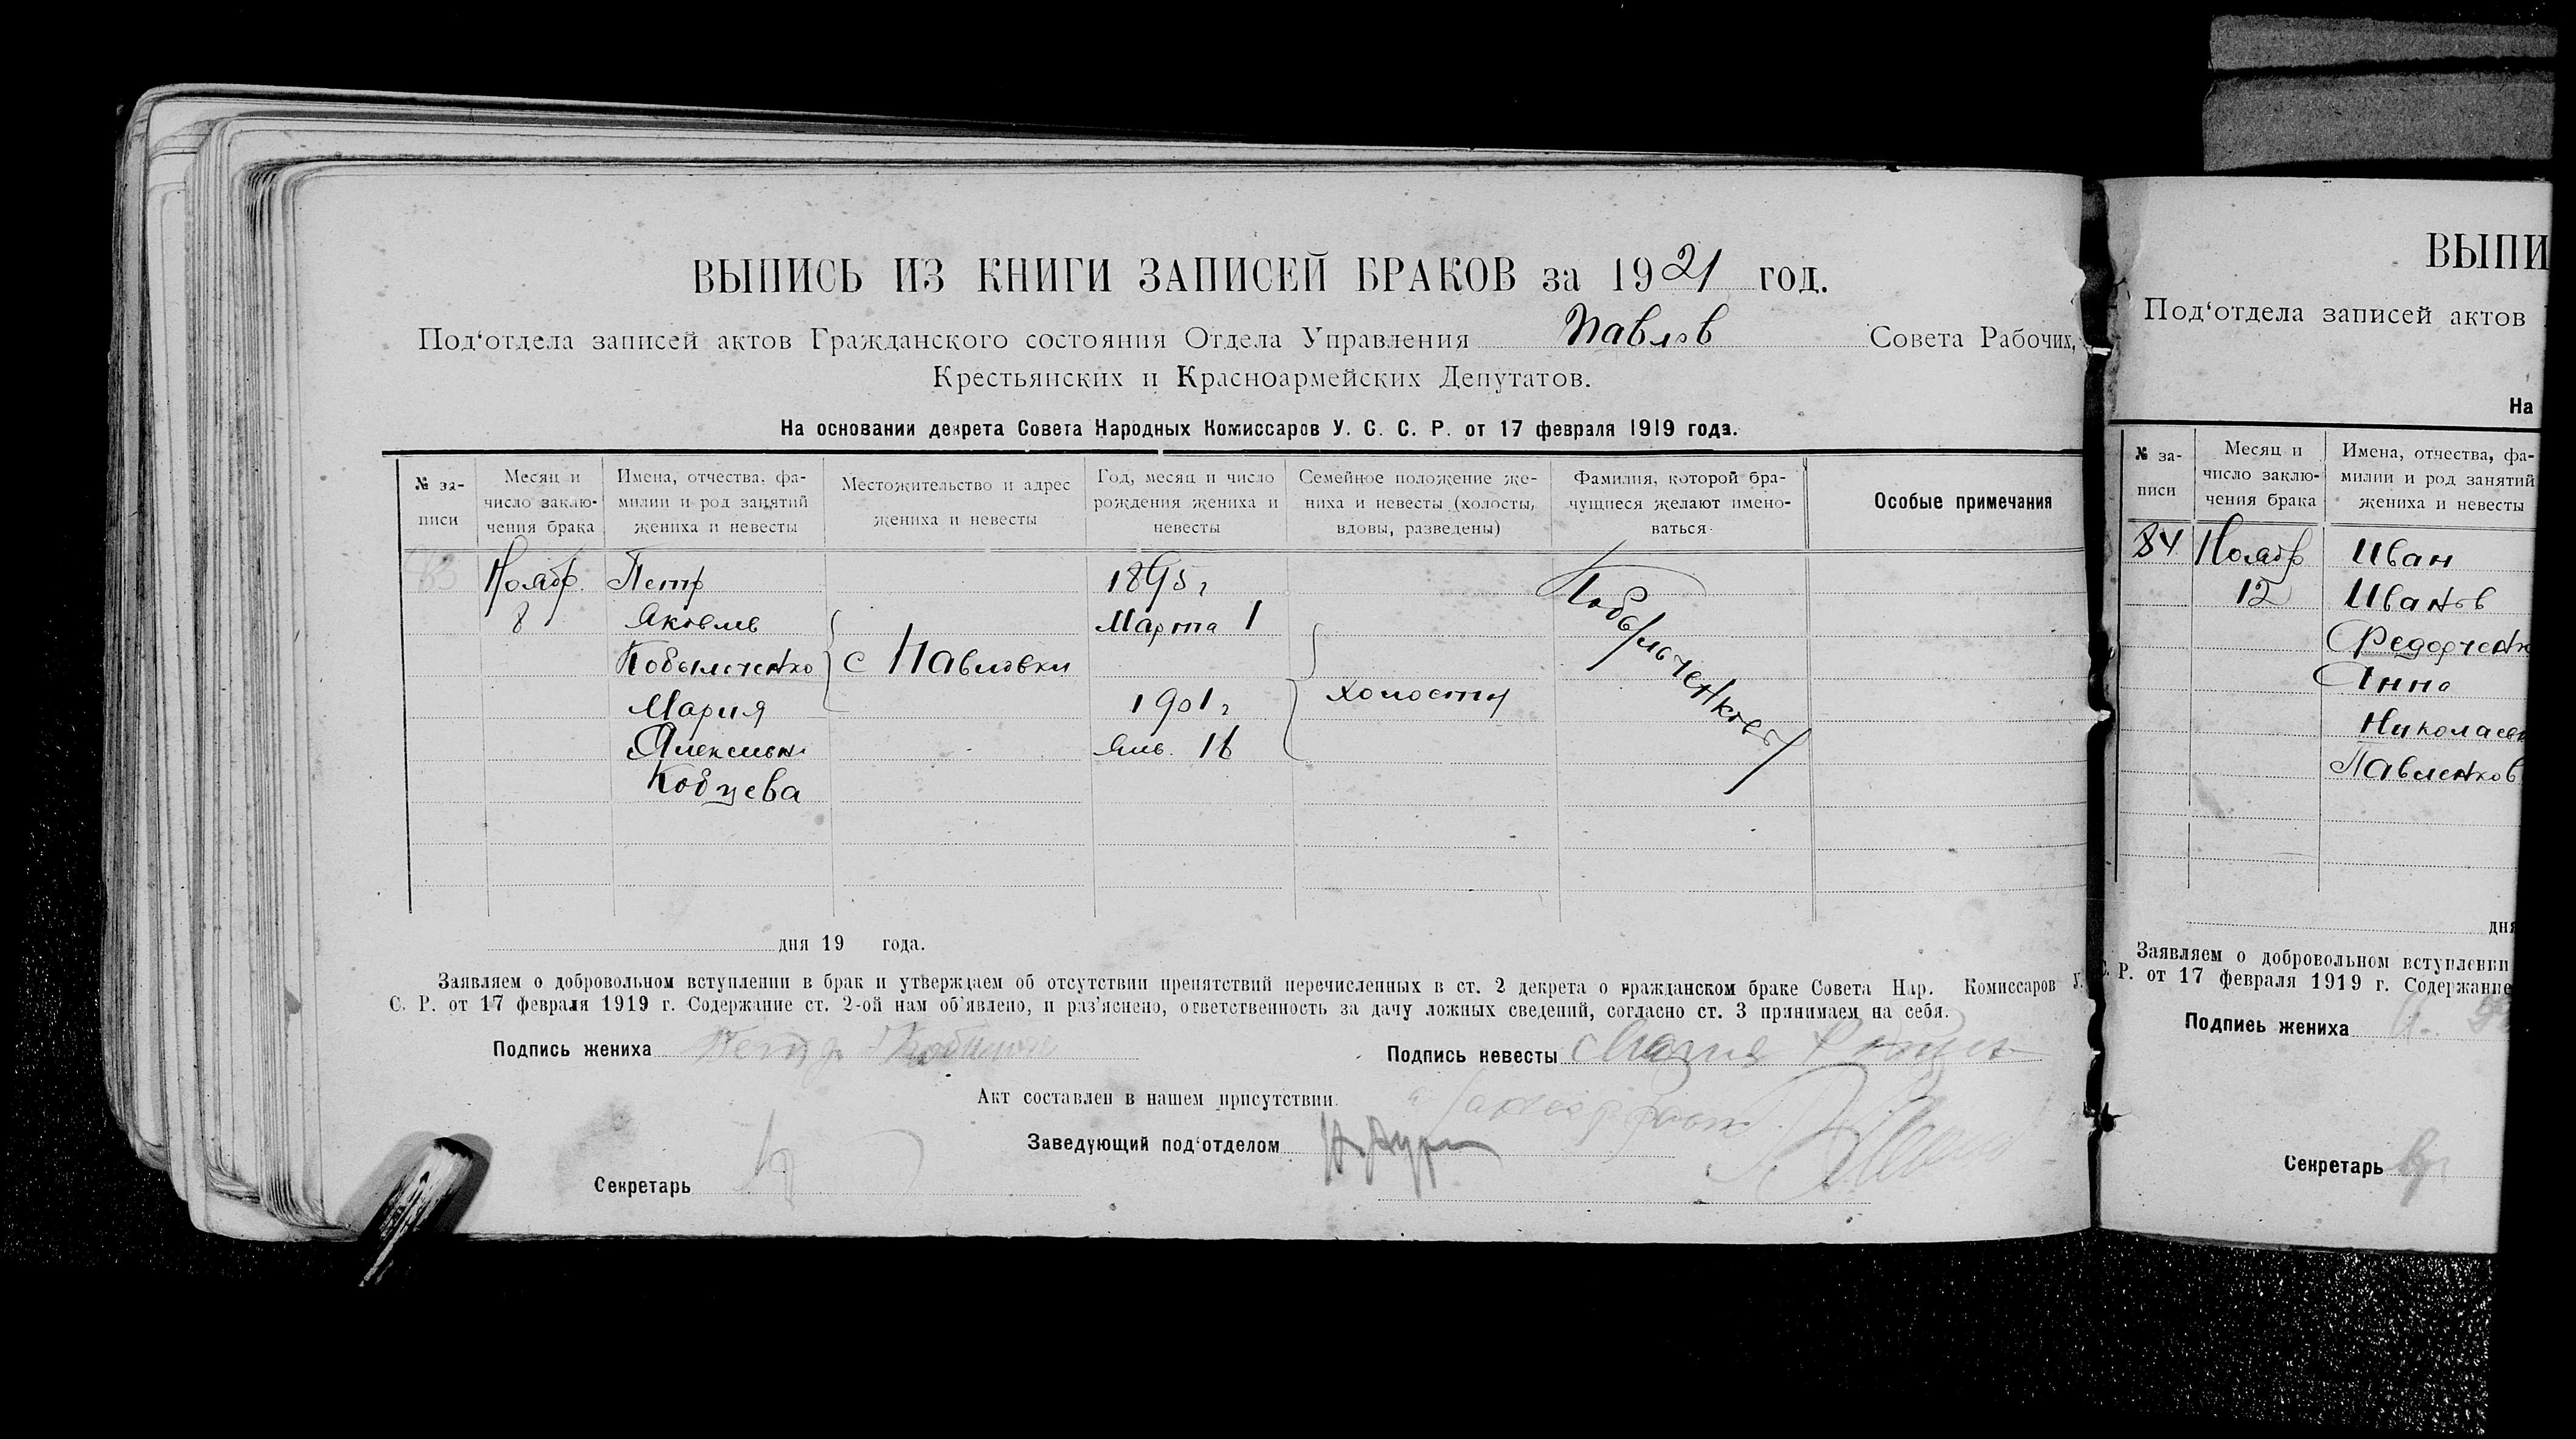 ВЫПИСЬ ИЗ КНИГИ ЗАПИСЕЙ БРАКОВ за 1921 год.
Под‘отдела записей актов Гражданского состояния Отдела Управления Павлов Совета Рабочих,
Крестьянских и Красноармейских Депутатов.
На основании декрета Совета Народных Комиссаров У. С. С. Р. от 17 февраля 1919 года.
№ за-
писи
Месяц и
число заклю-
чения брака
Имена, отчества, фа-
милии и род занятий
жениха и невесты
Местожительство и адрес
жениха и невесты
Год, месяц и число
рождения жениха и
невесты
Семейное положение же-
ниха и невесты (холосты,
вдовы, разведены)
Фамилия, которой бра-
чущиеся желают имено-
ваться
Особые примечания
83 Ноябр. Петр 1895 г
8 Яковлев Марта 1
Кобыльченко с Павловки
Мария 1901 г холосты
Алексеевн Янв. 16
Кобцева
Кобыльченковы
дня 19 года.
Заявляем о добровольном вступлении в брак и утверждаем об отсутствии препятствий перечисленных в ст. 2 декрета о гражданском браке Совета Нар. Комиссаров У.
С. Р. от 17 февраля 1919 г. Содержание ст. 2-ой нам об’явлено, и раз’яснено, ответственность за дачу ложных сведений, согласно ст. 3 принимаем на себя.
Подпись жениха Петр
Подпись невесты Мария
Акт составлен в нашем присутствии.
Заведующий под‘отделом
Секретарь
ВЫПИ
Под‘отдела записей актов
На
№ за-
писи
Месяц и
число заклю-
чения брака
Имена, отчества, фа-
милии и род занятий
жениха и невесты
84 Ноябр Иван
12 Иванов
Федорченк
Анна
Николаевн
Павленков
дня
Заявляем о добровольном вступлении
С. Р. от 17 февраля 1919 г. Содержание
Подпись жениха
Секретарь